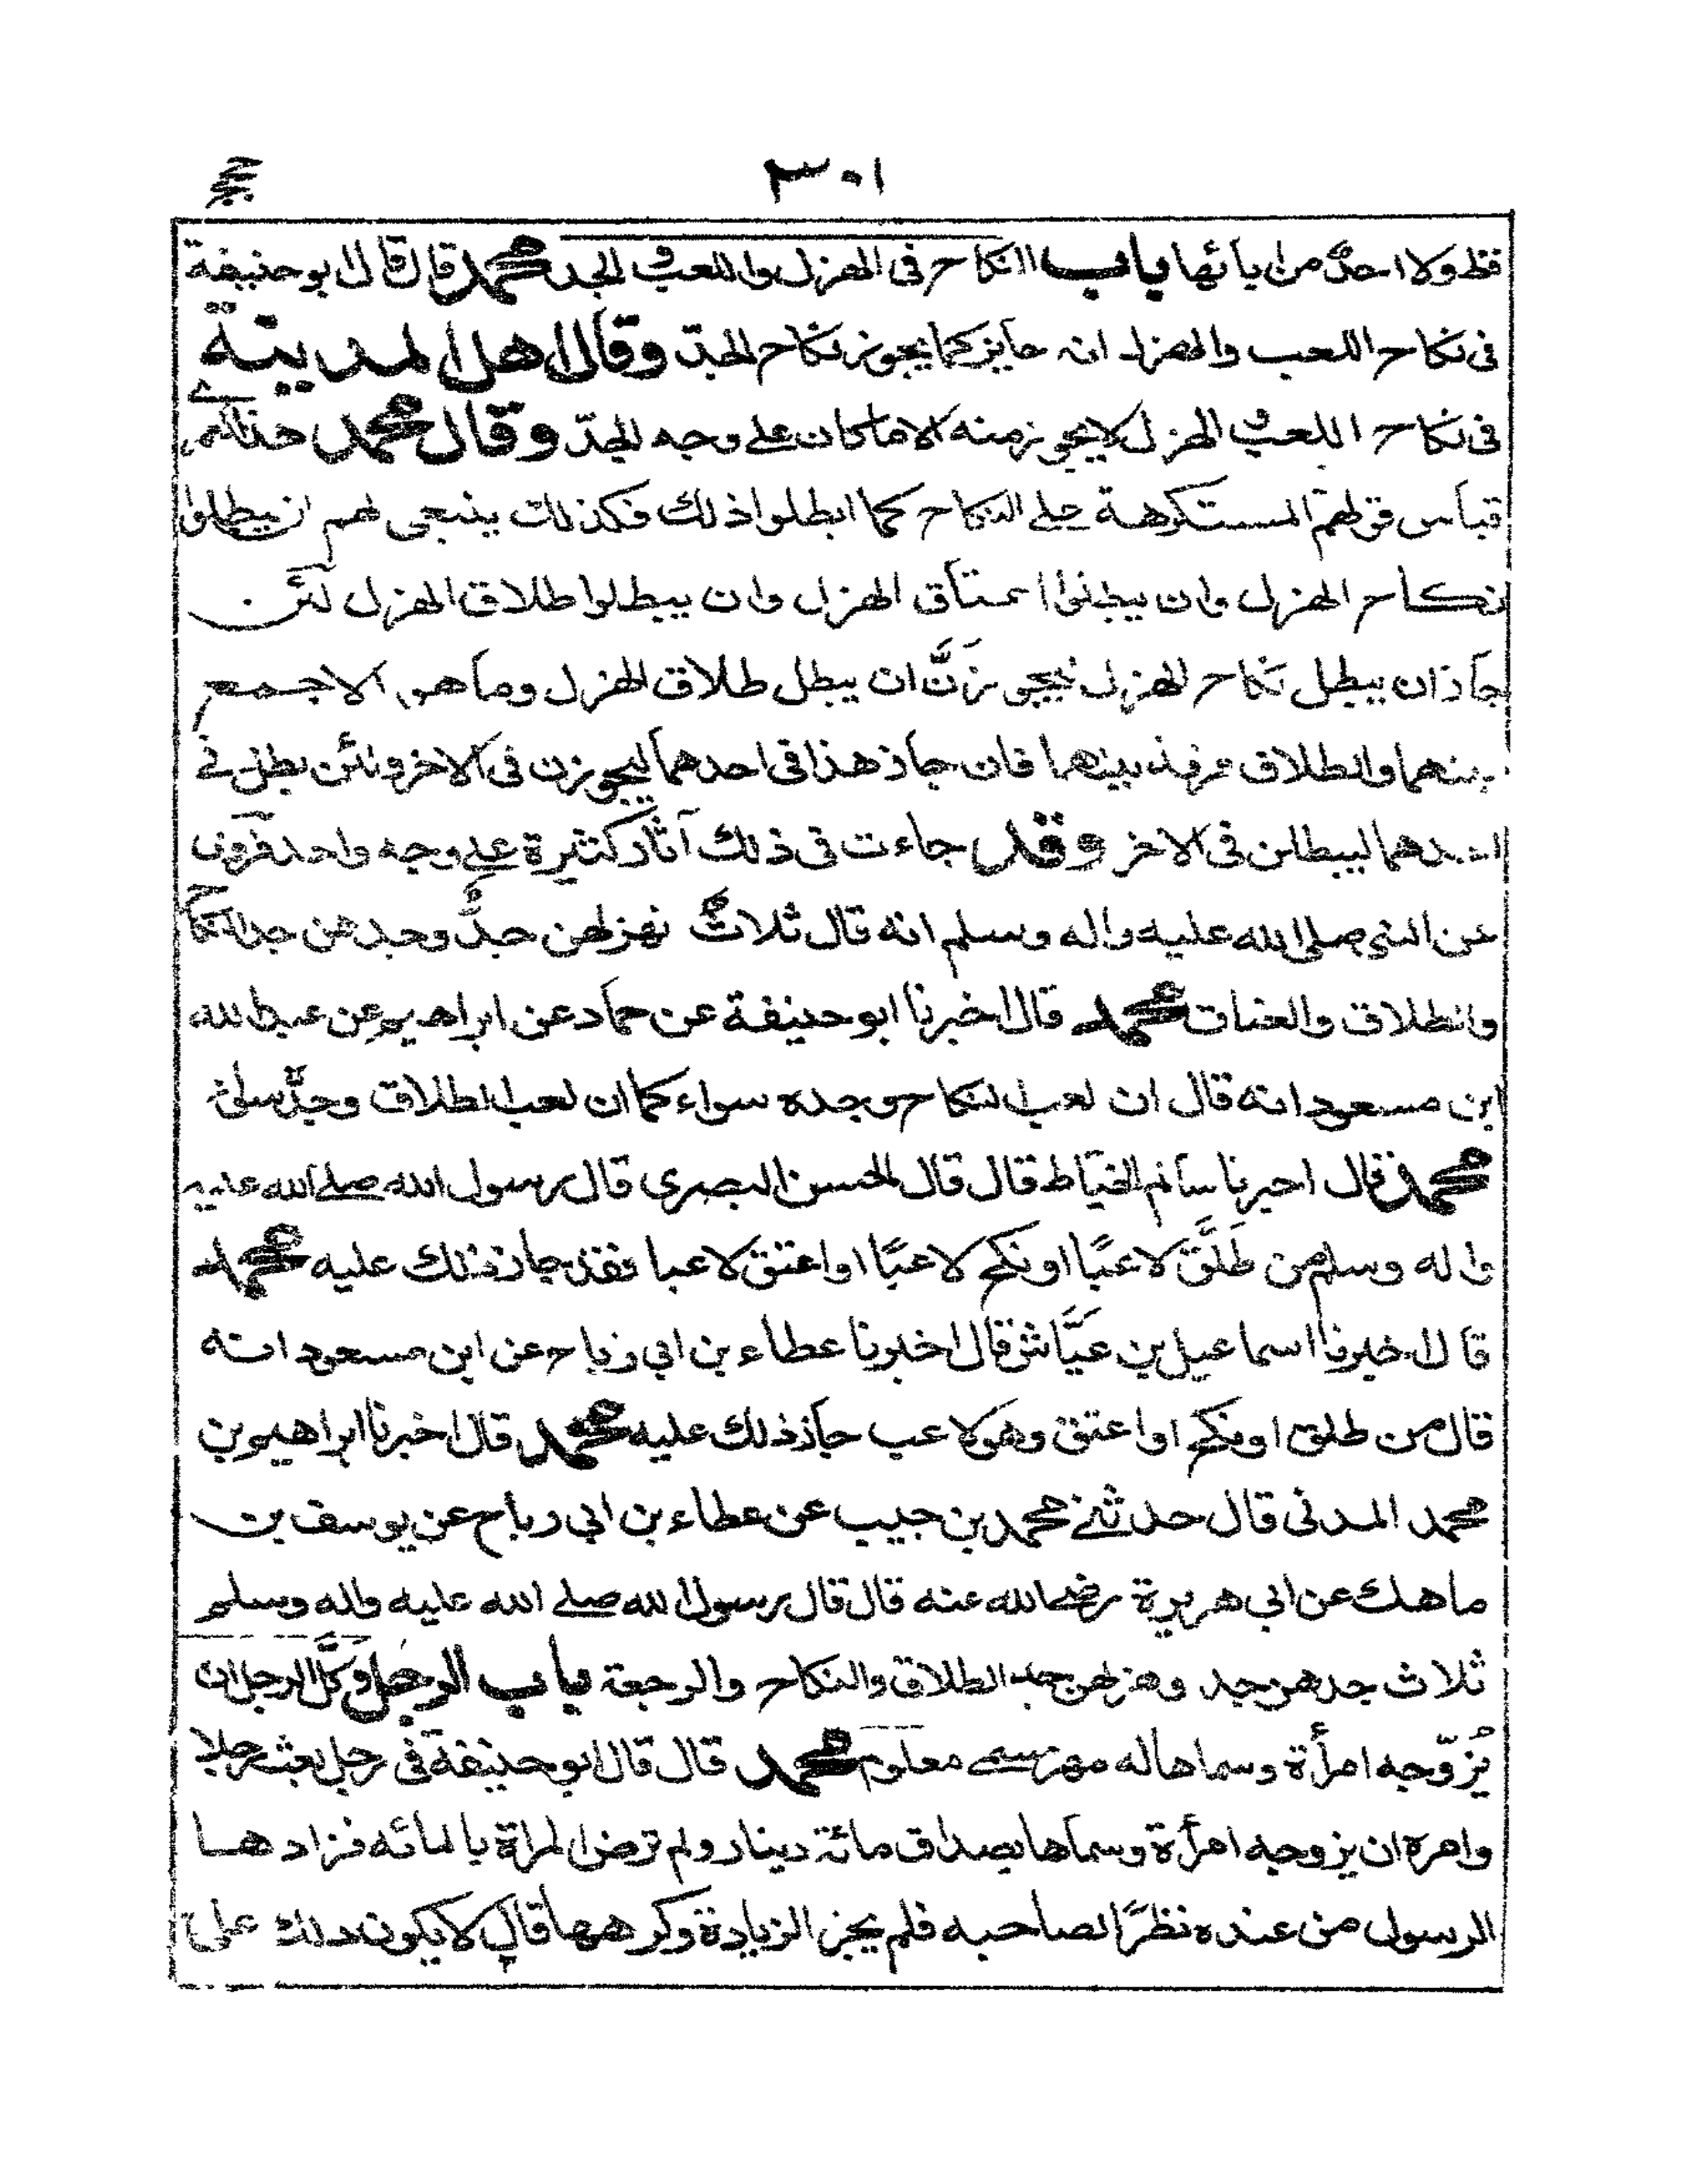 ٣٠١
قط ولا احد من ابائها باب النكاح فى الهزل واللعب و الجد محمد قال قال ابو حنيفة
فى نكاح اللعب والهزل انه جايز كما يجوز نكاح الجد وقال اهل المدينة
فى نكاح اللعب و الهزل لا يجوز منه الا ما كان على وجه الجد وقال محمد هذا
قياس قولهم المستكرهة على النكاح كما ابطلوا ذلك فكذلك ينبغى لهم ان يبطلوا
نكاح الهزل وان يبطلوا اعتاق الهزل وان يبطلوا طلاق الهزل لئن
جاز ان يبطل نكاح الهزل ليجوزنّ ان يبطل طلاق الهزل وما هو الا جمع
بينهما والطلاق بينهما فان جاز هذا فى احدهما ليجوزن فى الاخر ولئن بطل فى
احدهما ليبطلن فى الاخر وقد جاءت فى ذلك آثار كثيرة على وجه واحد
عن النبى صلى الله عليه واله وسلم انه قال ثلاث هزلهن جدّ وجدهن جد النكاح
والطلاق والعتاق محمد قال اخبرنا ابو حنيفة عن حماد عن ابراهيم عن عبد الله
ابن مسعود انه قال ان لعب النكاح وجده سواء كما ان لعب الطلاق وجدّه سواء
محمد قال اخبرنا سالم الخياط قال قال الحسن البصري قال رسول الله صلى الله عليه
واله وسلم من طَلَّق لاعبًا او نكح لاعبًا او اعتق لاعبا فقد جاز ذلك عليه محمد
قال اخبرنا اسماعيل بن عَيَّاش قال اخبرنا عطاء بن ابي رباح عن ابن مسعود انه
قال من طلق او نكح او اعتق وهو لاعب جاز ذلك عليه محمد قال اخبرنا ابراهيم بن
محمد المدنى قال حدثنى محمد بن حبيب عن عطاء بن ابي رباح عن يوسف بن
ماهك عن ابي هريرة رضى الله عنه قال قال رسول الله صلى الله عليه واله وسلم
ثلاث جدهن جد وهزلهن جد الطلاق والنكاح والرجعة باب الرجل وكَّل الرجل ان
يُزوّجه امرأة وسماها له مهر معلوم محمد قال قال ابو حنيفة فى رجل بعث رجلا
وامره ان يزوجه امرأة وسماها بصداق مائة دينار ولم ترض المراة بالمائه فزادها
الرسول من عنده نظرًا لصاحبه فلم يجز الزيادة وكرهها قال لا يكون ذلك على